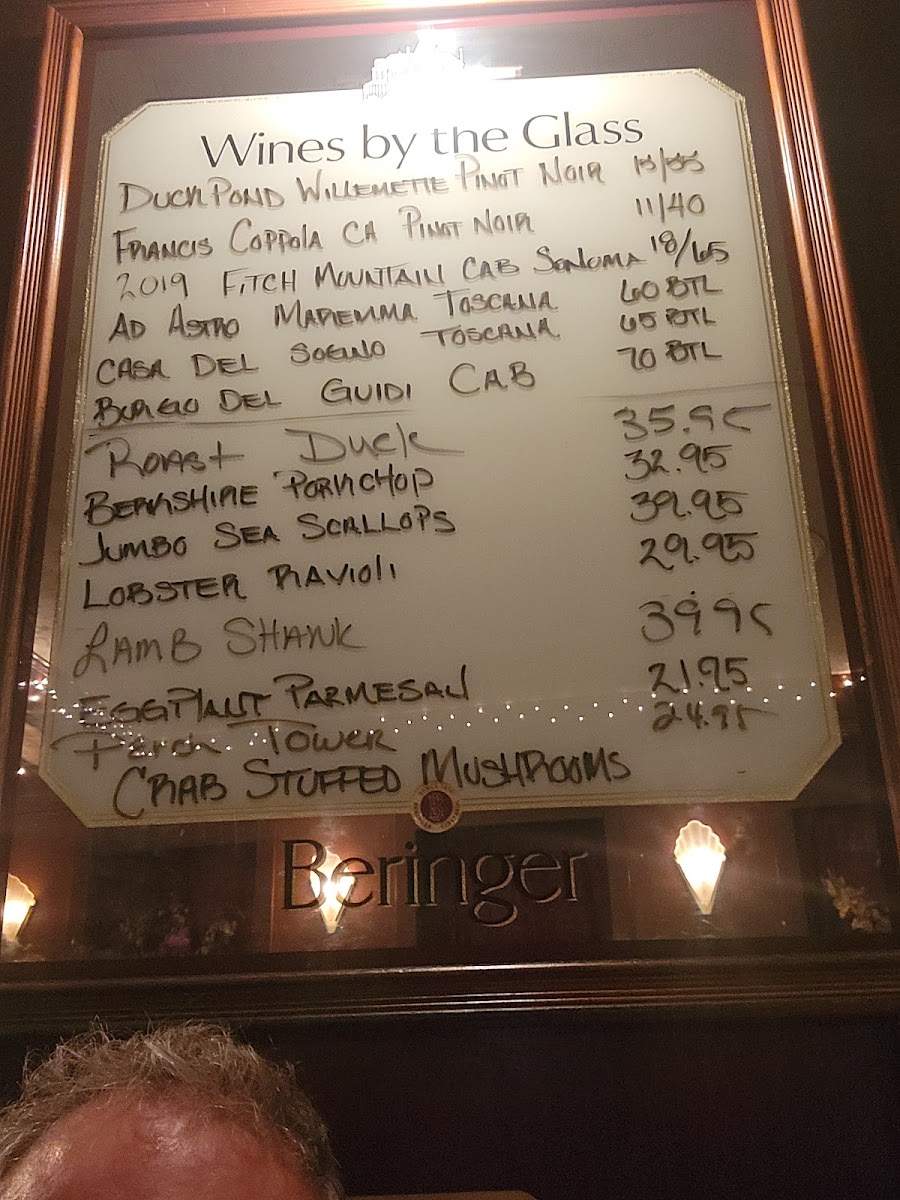 Wines by the Glass
DUCK POND WILLEMETTE PINOT NOIR 15/55
FRANCIS COPPOLA CA PINOT NOIR 11/40
2019 FITCH MOUNTAIN CAB SONOMA 18/65
AD ASTRO MAREMMA TOSCANA 60 BTL
CASA DEL SOGNO TOSCANA 65 BTL
BORGO DEL GUIDI CAB 70 BTL
ROAST DUCK 35.95
BERKSHIRE PORKCHOP 32.95
JUMBO SEA SCALLOPS 39.95
LOBSTER RAVIOLI 29.95
LAMB SHANK 39.95
EGGPLANT PARMESAN 21.95
Perch Tower 24.95
CRAB STUFFED MUSHROOMS
Beringer